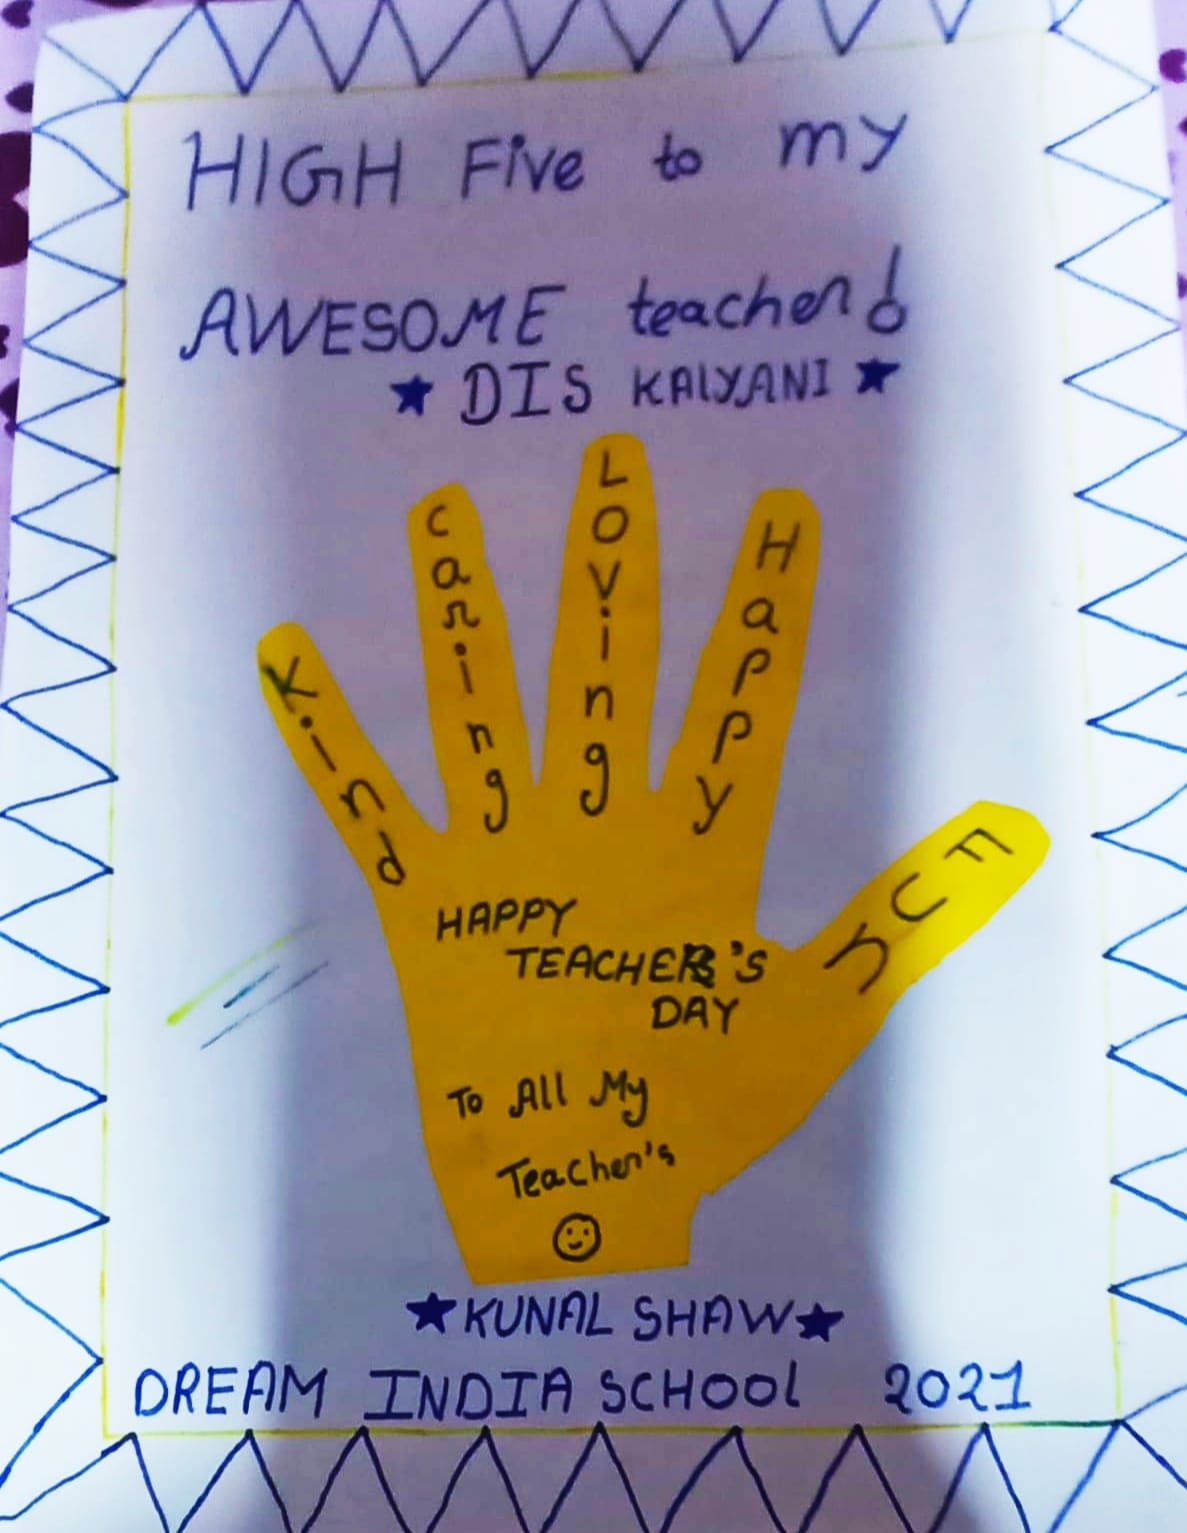 HIGH Five to my
AWESOME teacher!
★ DIS KALYANI ★
Kind
Caring
Loving
Happy
Fun
HAPPY
TEACHER'S
DAY
To All My
Teacher's
★KUNAL SHAW★
DREAM INDIA SCHOOL 2021